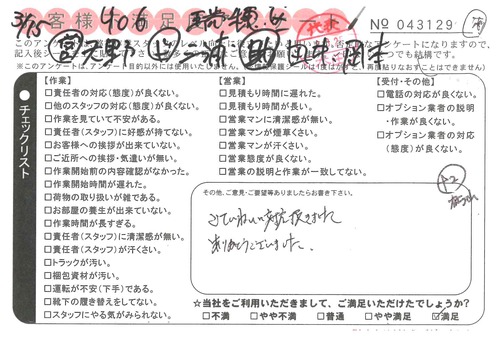 3/15
406
客様 満足
№ 043129
このアンケートは
※このアンケートは、アンケート目的以外には使用いたしません。
チェックリスト
【作業】
□責任者の対応(態度)が良くない。
□他のスタッフの対応(態度)が良くない。
□作業を見ていて不安がある。
□責任者(スタッフ)に好感が持てない。
□お客様への挨拶が出来ていない。
□ご近所への挨拶・気遣いが無い。
□作業開始前の内容確認がなかった。
□作業開始時間が遅れた。
□荷物の取り扱いが雑である。
□お部屋の養生が出来ていない。
□作業時間が長すぎる。
□責任者(スタッフ)に清潔感が無い。
□責任者(スタッフ)が汗くさい。
□トラックが汚い。
□梱包資材が汚い。
□運転が不安(下手)である。
□靴下の履き替えをしてない。
□スタッフにやる気がみられない。
【営業】
□見積もり時間に遅れた。
□見積もり時間が長い。
□営業マンに清潔感が無い。
□営業マンが煙草くさい。
□営業マンが汗くさい。
□営業態度が良くない。
□営業の説明と作業が一致してない。
【受付・その他】
□電話の対応が良くない。
□オプション業者の説明
・作業が良くない。
□オプション業者の対応
(態度)が良くない。
その他、ご意見・ご要望等ありましたらお書き下さい。
ていねいな対応頂きました
ありがとうございました。
☆当社をご利用いただきまして、ご満足いただけたでしょうか?
□不満 □やや不満 □普通 □やや満足 ☑満足